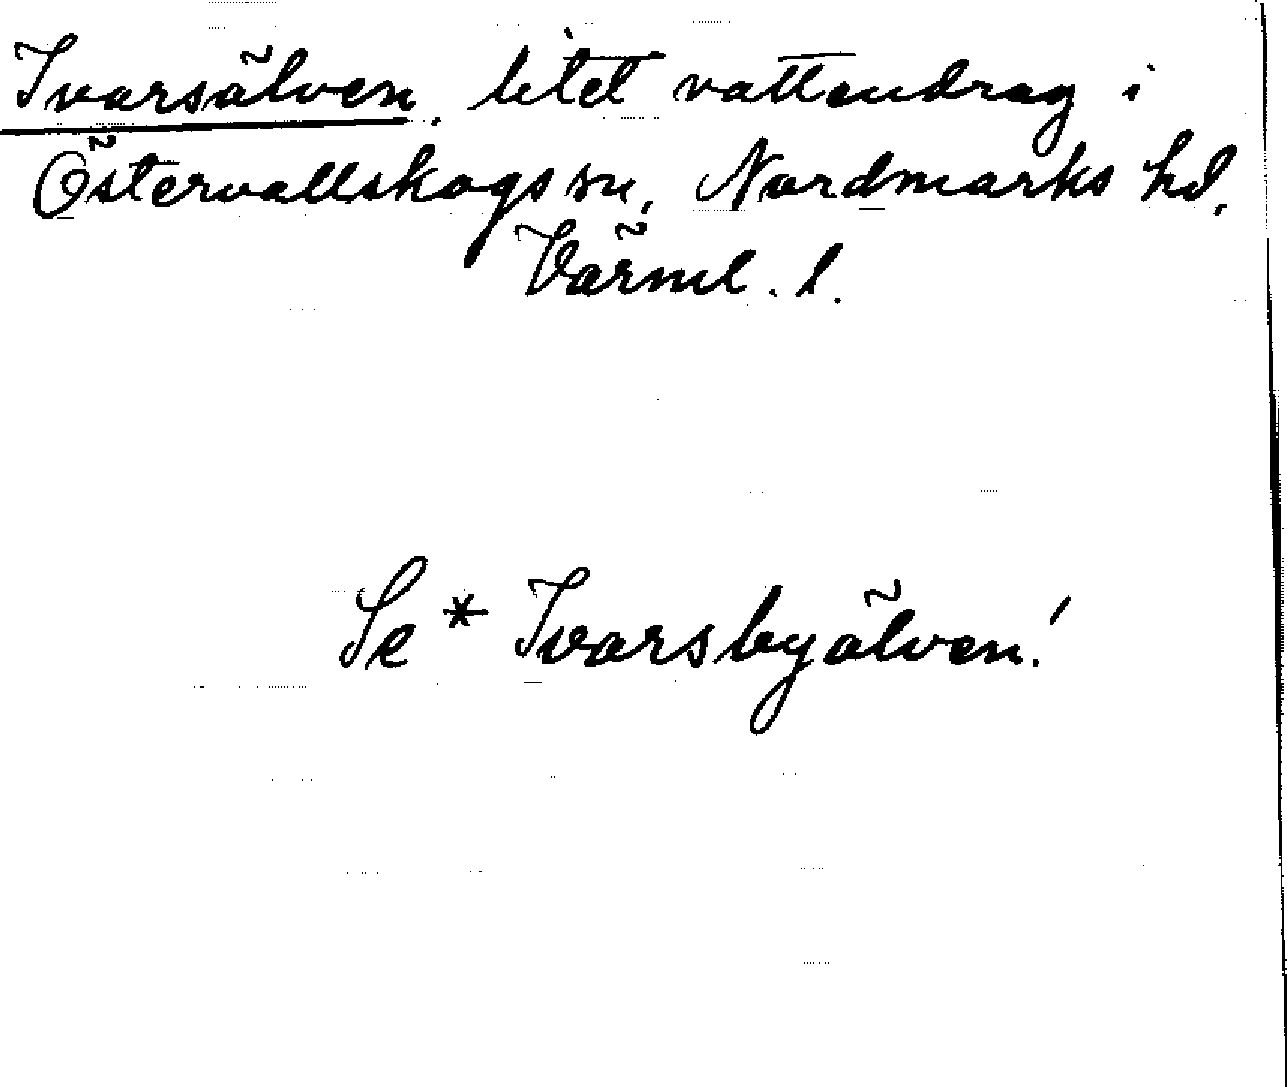 Ivarsälven, litet vattendrag i
Östervallskogs sn, Nordmarks hd,
Värml. l.
Se * Ivarsbyälven!